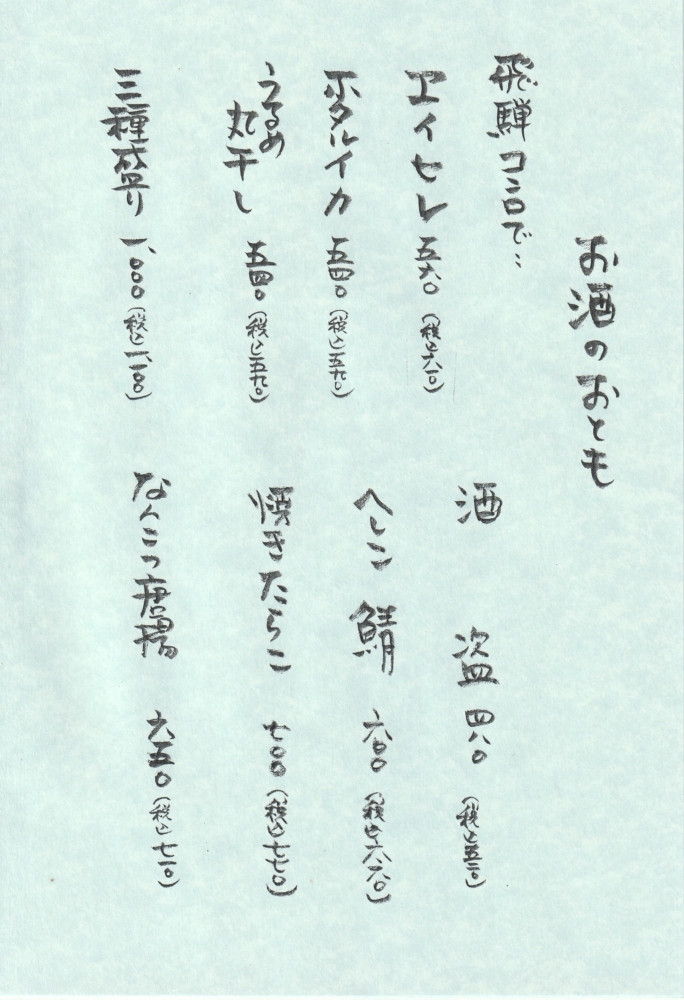 お酒のおとも
飛騨コンロで…
ヱイヒレ 五六〇（税込六一〇）
ホタルイカ 五四〇（税込五九〇）
うるめ
丸干し 五四〇（税込五九〇）
三種盛り 一、〇〇〇（税込一、一〇〇）
酒 盗 四八〇（税込五二〇）
へしこ 鯖 六〇〇（税込六六〇）
焼きたらこ 七〇〇（税込七七〇）
なんこつ唐揚 六五〇（税込七一〇）